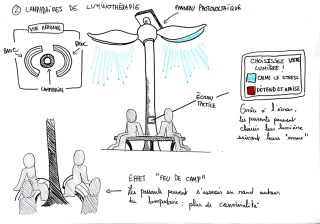 ② LAMPADAIRES DE LUMINOTHÉRAPIE
PANNEAU PHOTOVOLTAÏQUE
VUE AÉRIENNE
BANC
BANC
LAMPADAIRE
CHOISISSEZ VOTRE
LUMIÈRE !
CALME LE STRESS
DÉTEND ET APAISE
ÉCRAN
TACTILE
Grâce à l'écran,
les passants peuvent
choisir leur lumière
suivant leur "mood"
EFFET "FEU DE CAMP"
Les passants peuvent s'asseoir en rond autour
du lampadaire : plus de convivialité